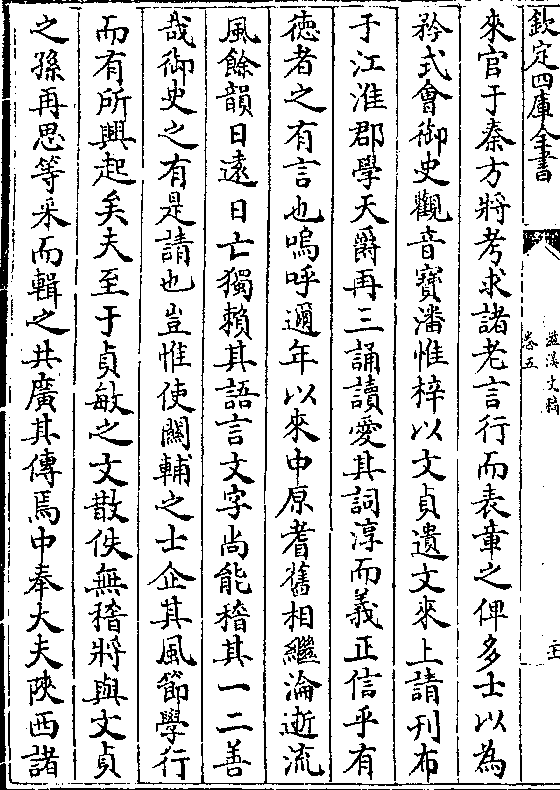 欽定四庫全書
滋溪文稿
卷五
來官于秦方將考求諸老言行而表章之俾多士以為
矜式會御史觀音寶潘惟梓以文貞遺文來上請刊布
于江淮郡學天爵再三誦讀愛其詞淳而義正信乎有
徳者之有言也嗚呼邇年以來中原耆舊相繼淪逝流
風餘韻日遠日亡獨賴其語言文字尚能稽其一二善
哉御史之有是請也豈惟使闗輔之士企其風節學行
而有所興起矣夫至于貞敏之文散佚無稽將與文貞
之孫再思等采而輯之共廣其傳焉中奉大夫陜西諸